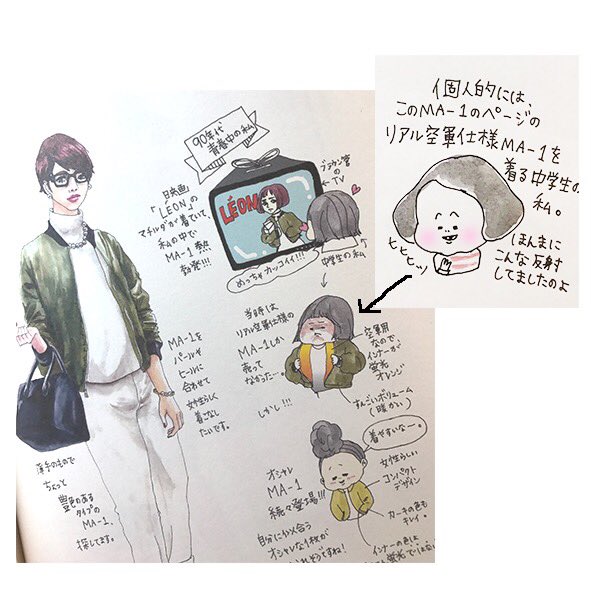 個人的には、
このMA-1のページの
リアル空軍仕様MA-1を
着る中学生の
私。
ほんまに
こんな反射
してましたのよ
ヒヒヒッ
90年代
青春中の私
ブラウン管
のTV
LÉON
映画
「LÉON」の
マチルダが着ていて、
私の中で
MA-1熱
勃発!!!
めっちゃカッコイイ!!!
中学生の私
当時は
リアル空軍仕様の
MA-1しか
売って
なかった…
空軍用
なので
インナーが
蛍光
オレンジ
すんごいボリューム
(暖かい)
しかし!!!
MA-1を
パールや
ヒールに
合わせて
女性らしく
着こなし
たいです。
着やすいなー。
オシャレ
MA-1
続々登場!!!
女性らしい
コンパクト
デザイン
カーキの色も
キレイ。
自分に似合う
オシャレな1枚が
インナーの色は
薄手のもので
ちょっと
艶のある
タイプの
MA-1、
探してます。